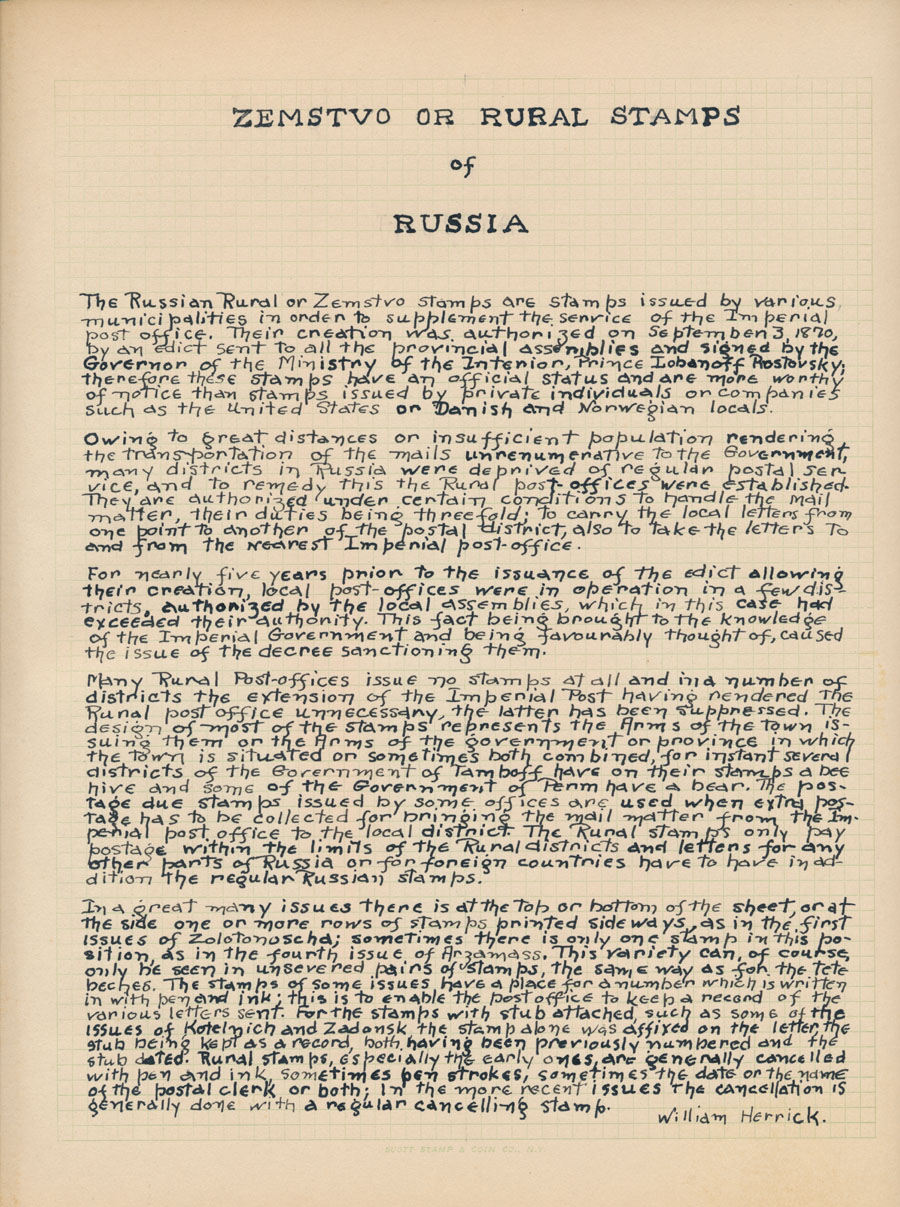 ZEMSTVO OR RURAL STAMPS
of
RUSSIA
The Russian Rural or Zemstvo stamps are stamps issued by various
municipalities in order to supplement the service of the Imperial
post office. Their creation was authorized on September 3, 1870,
by an edict sent to all the provincial assemblies and signed by the
Governor of the Ministry of the Interior, Prince Lobanoff Rostovsky;
therefore these stamps have an official status and are more worthy
of notice than stamps issued by private individuals or companies
such as the United States or Danish and Norwegian locals.
Owing to great distances or insufficient population rendering
the transportation of the mails unrenumerative to the Government,
many districts in Russia were deprived of regular postal ser-
vice, and to remedy this the Rural post-offices were established.
They are authorized under certain conditions to handle the mail
matter, their duties being threefold; to carry the local letters from
one point to another of the postal district, also to take the letters to
and from the nearest Imperial post-office.
For nearly five years prior to the issuance of the edict allowing
their creation, local post-offices were in operation in a few dis-
tricts, authorized by the local assemblies, which in this case had
exceeded their authority. This fact being brought to the knowledge
of the Imperial Government and being favourably thought of, caused
the issue of the decree sanctioning them.
Many Rural Post-offices issue no stamps at all and in a number of
districts the extension of the Imperial Post having rendered the
Rural post office unnecessary, the latter has been suppressed. The
design of most of the stamps represents the Arms of the town is-
suing them or the Arms of the government or province in which
the town is situated or sometimes both combined, for instant several
districts of the Government of Tamboff have on their stamps a bee
hive and some of the Government of Perm have a bear. The pos-
tage due stamps issued by some offices are used when extra pos-
tage has to be collected for bringing the mail matter from the Im-
perial post office to the local district. The Rural stamps only pay
postage within the limits of the Rural districts and letters for any
other parts of Russia or for foreign countries have to have in ad-
dition the regular Russian stamps.
In a great many issues there is at the top or bottom of the sheet, or at
the side one or more rows of stamps printed sideways, as in the first
issues of Zolotonoscha; sometimes there is only one stamp in this po-
sition, as in the fourth issue of Arzamass. This variety can, of course,
only be seen in unsevered pairs of stamps, the same way as for the tete
beches. The stamps of some issues have a place for a number which is written
in with pen and ink; this is to enable the post office to keep a record of the
various letters sent. For the stamps with stub attached, such as some of the
issues of Kotelnich and Zadonsk, the stamp alone was affixed on the letter, the
stub being kept as a record, both having been previously numbered and the
stub dated. Rural stamps, especially the early ones, are generally cancelled
with pen and ink, sometimes pen strokes, sometimes the date or the name
of the postal clerk, or both; In the more recent issues the cancellation is
generally done with a regular cancelling stamp.
William Herrick.
SCOTT STAMP & COIN CO., N.Y.